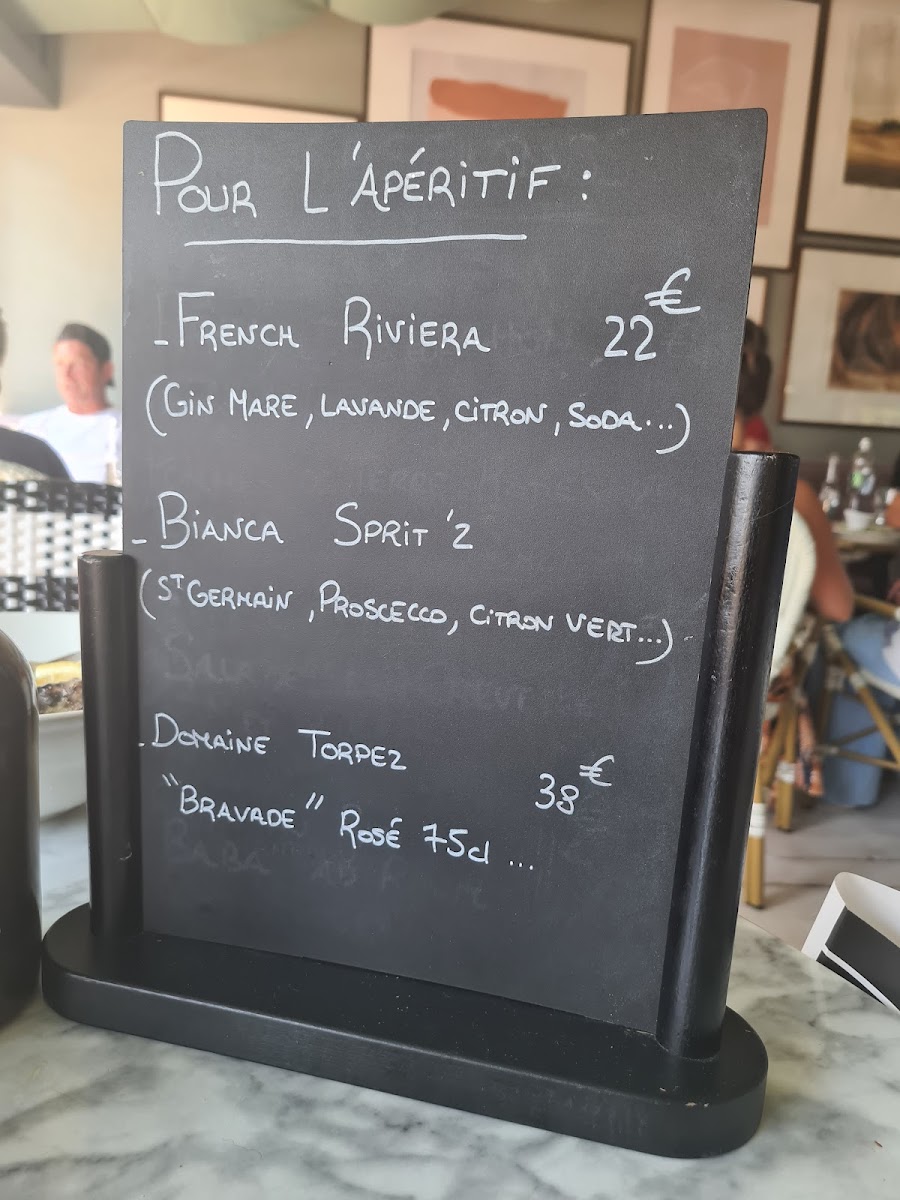 Pour L'apéritif :
- French Riviera 22€
(Gin Mare, Lavande, citron, soda...)
- Bianca Sprit'z
(St Germain, Proscecco, citron vert...)
- Domaine Torpez
38€
"Bravade" Rosé 75cl ...